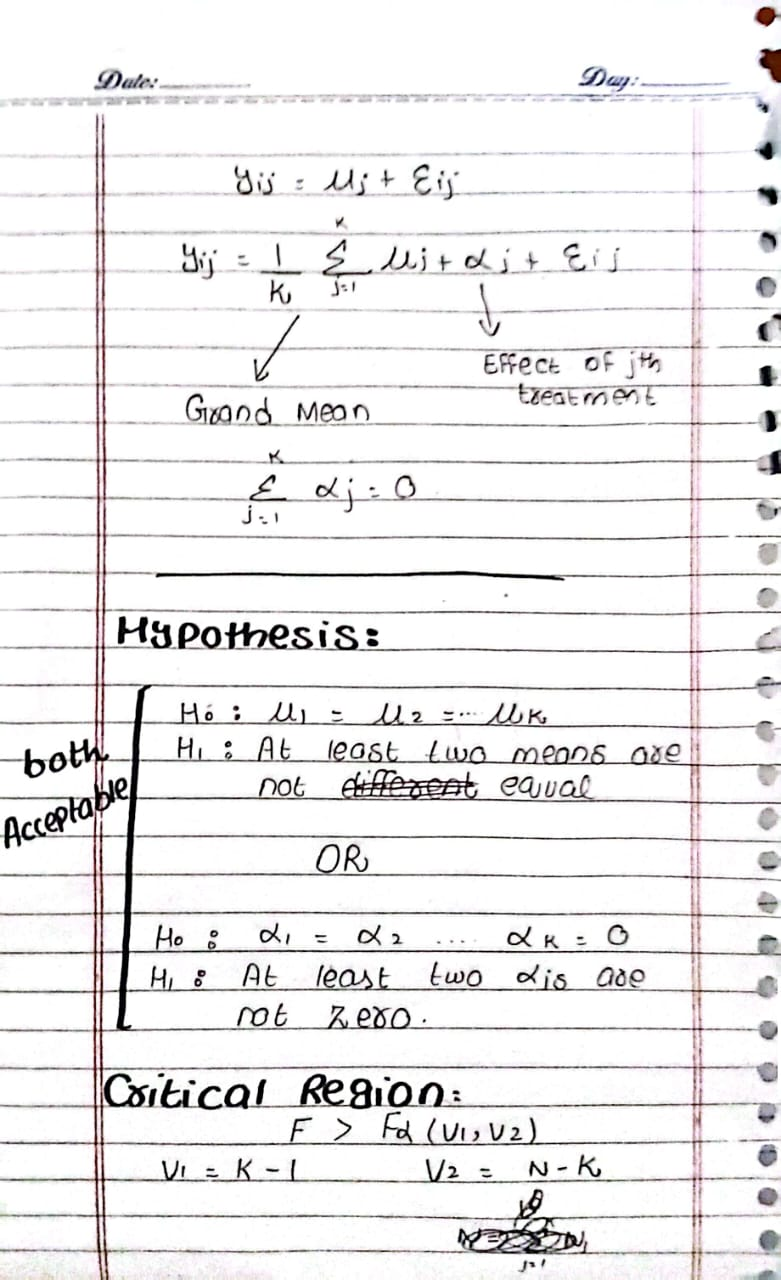 Date: Day:
yij = μj + εij
yij = 1/K Σ(j=1 to K) μj + αj + εij
Effect of jth
treatment
Grand Mean
Σ(j=1 to K) αj = 0
Hypothesis:
both
Acceptable
Ho : μ1 = μ2 =... μK
H1 : At least two means are
not different equal
OR
Ho : α1 = α2 .... αK = 0
H1 : At least two αjs are
not zero.
Critical Region:
F > Fα (V1, V2)
V1 = K - 1 V2 = N - K
j=1